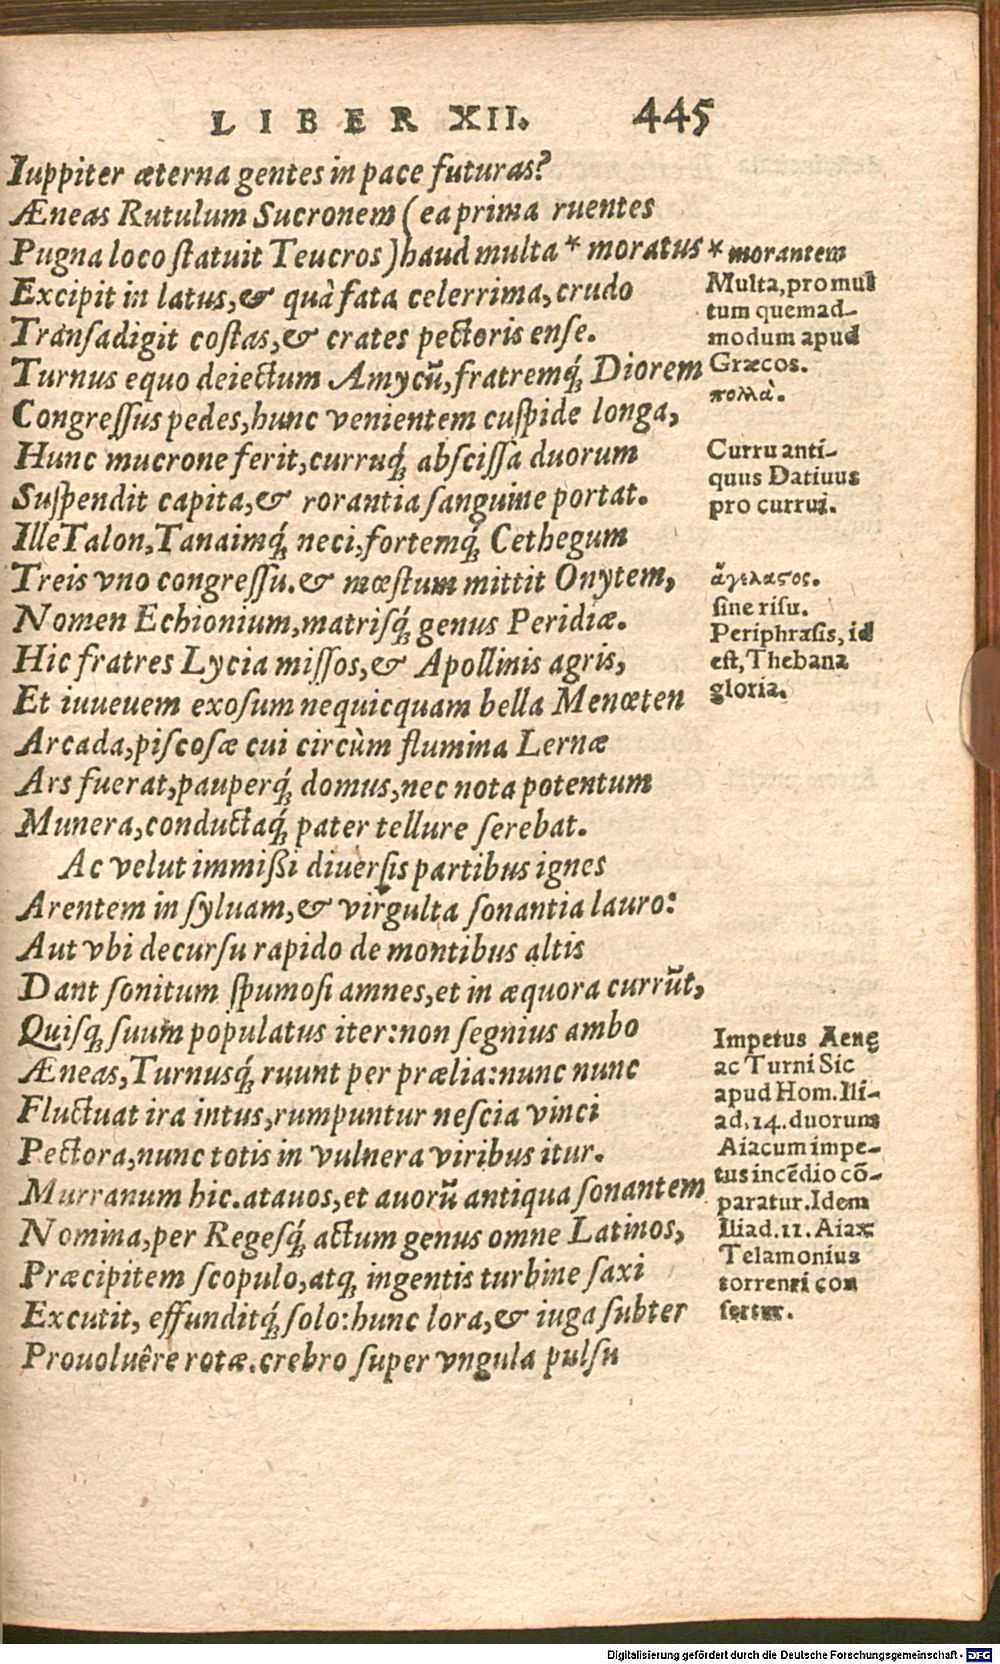 LIBER XII. 445
Iuppiter æterna gentes in pace futuras?
Æneas Rutulum Sucronem (ea prima ruentes
Pugna loco ſtatuit Teucros) haud multa * moratus
Excipit in latus, & quà fata celerrima, crudo
Tranſadigit coſtas, & crates pectoris enſe.
Turnus equo deiectum Amycū, fratremq́; Diorem
Congreſſus pedes, hunc venientem cuſpide longa,
Hunc mucrone ferit, curruq́; abſciſſa duorum
Suſpendit capita, & rorantia ſanguine portat.
Ille Talon, Tanaimq́; neci, fortemq́; Cethegum
Treis vno congreſſu. & mœſtum mittit Onytem,
Nomen Echionium, matriſq́; genus Peridiæ.
Hic fratres Lycia miſſos, & Apollinis agris,
Et iuueuem exoſum nequicquam bella Menœten
Arcada, piſcoſæ cui circùm flumina Lernæ
Ars fuerat, pauperq́; domus, nec nota potentum
Munera, conductaq́; pater tellure ſerebat.
Ac velut immißi diuerſis partibus ignes
Arentem in ſyluam, & virgulta ſonantia lauro:
Aut vbi decurſu rapido de montibus altis
Dant ſonitum ſpumoſi amnes, et in æquora currūt,
Quiſq; ſuum populatus iter: non ſegnius ambo
Æneas, Turnusq́; ruunt per prælia: nunc nunc
Fluctuat ira intus, rumpuntur neſcia vinci
Pectora, nunc totis in vulnera viribus itur.
Murranum hic. atauos, et auorū antiqua ſonantem
Nomina, per Regeſq́; actum genus omne Latinos,
Præcipitem ſcopulo, atq; ingentis turbine ſaxi
Excutit, effunditq́; ſolo: hunc lora, & iuga ſubter
Prouoluêre rotæ. crebro ſuper vngula pulſu
* morantem
Multa, pro mul
tum quemad-
modum apud
Græcos.
πολλὰ.
Curru anti-
quus Datiuus
pro currui.
ἀγέλαϛος.
ſine riſu.
Periphraſis, id
eſt, Thebana
gloria.
Impetus Aenę
ac Turni Sic
apud Hom. Ili-
ad. 14. duorum
Aiacum impe-
tus incēdio cō-
paratur. Idem
Iliad. 11. Aiax
Telamonius
torrenti con
fertur.
Digitalisierung gefördert durch die Deutsche Forschungsgemeinschaft - DFG